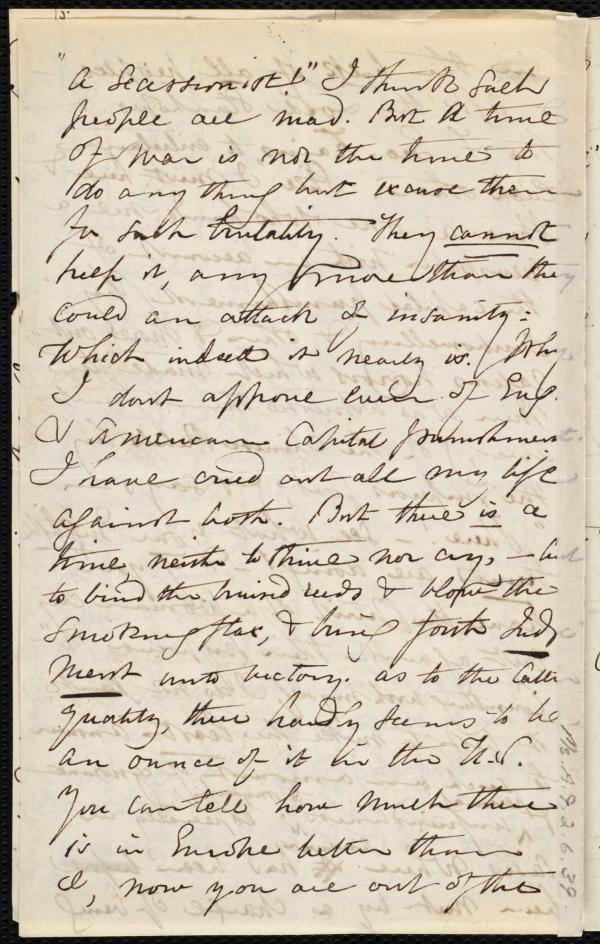 "A Secessionist!" I think such
people are mad. But a time
of war is not the time to
do any thing but excuse them
for such brutality. They cannot
help it, any more than they
could an attack of insanity:
Which indeed it nearly is. Why
I dont approve even of Eng.
& American Capital punishment.
I have cried out all my life
against both. But there is a
time neither to strive nor cry, – but
to bind the bruised reeds & blow the
smoking flax, & bring forth Judg
ment unto victory. as to the latter
quality, there hardly seems to be
an ounce of it in the U.S.
You can tell how much there
is in Europe better than
I, now you are out of the
Ms. A.9.2.6.39